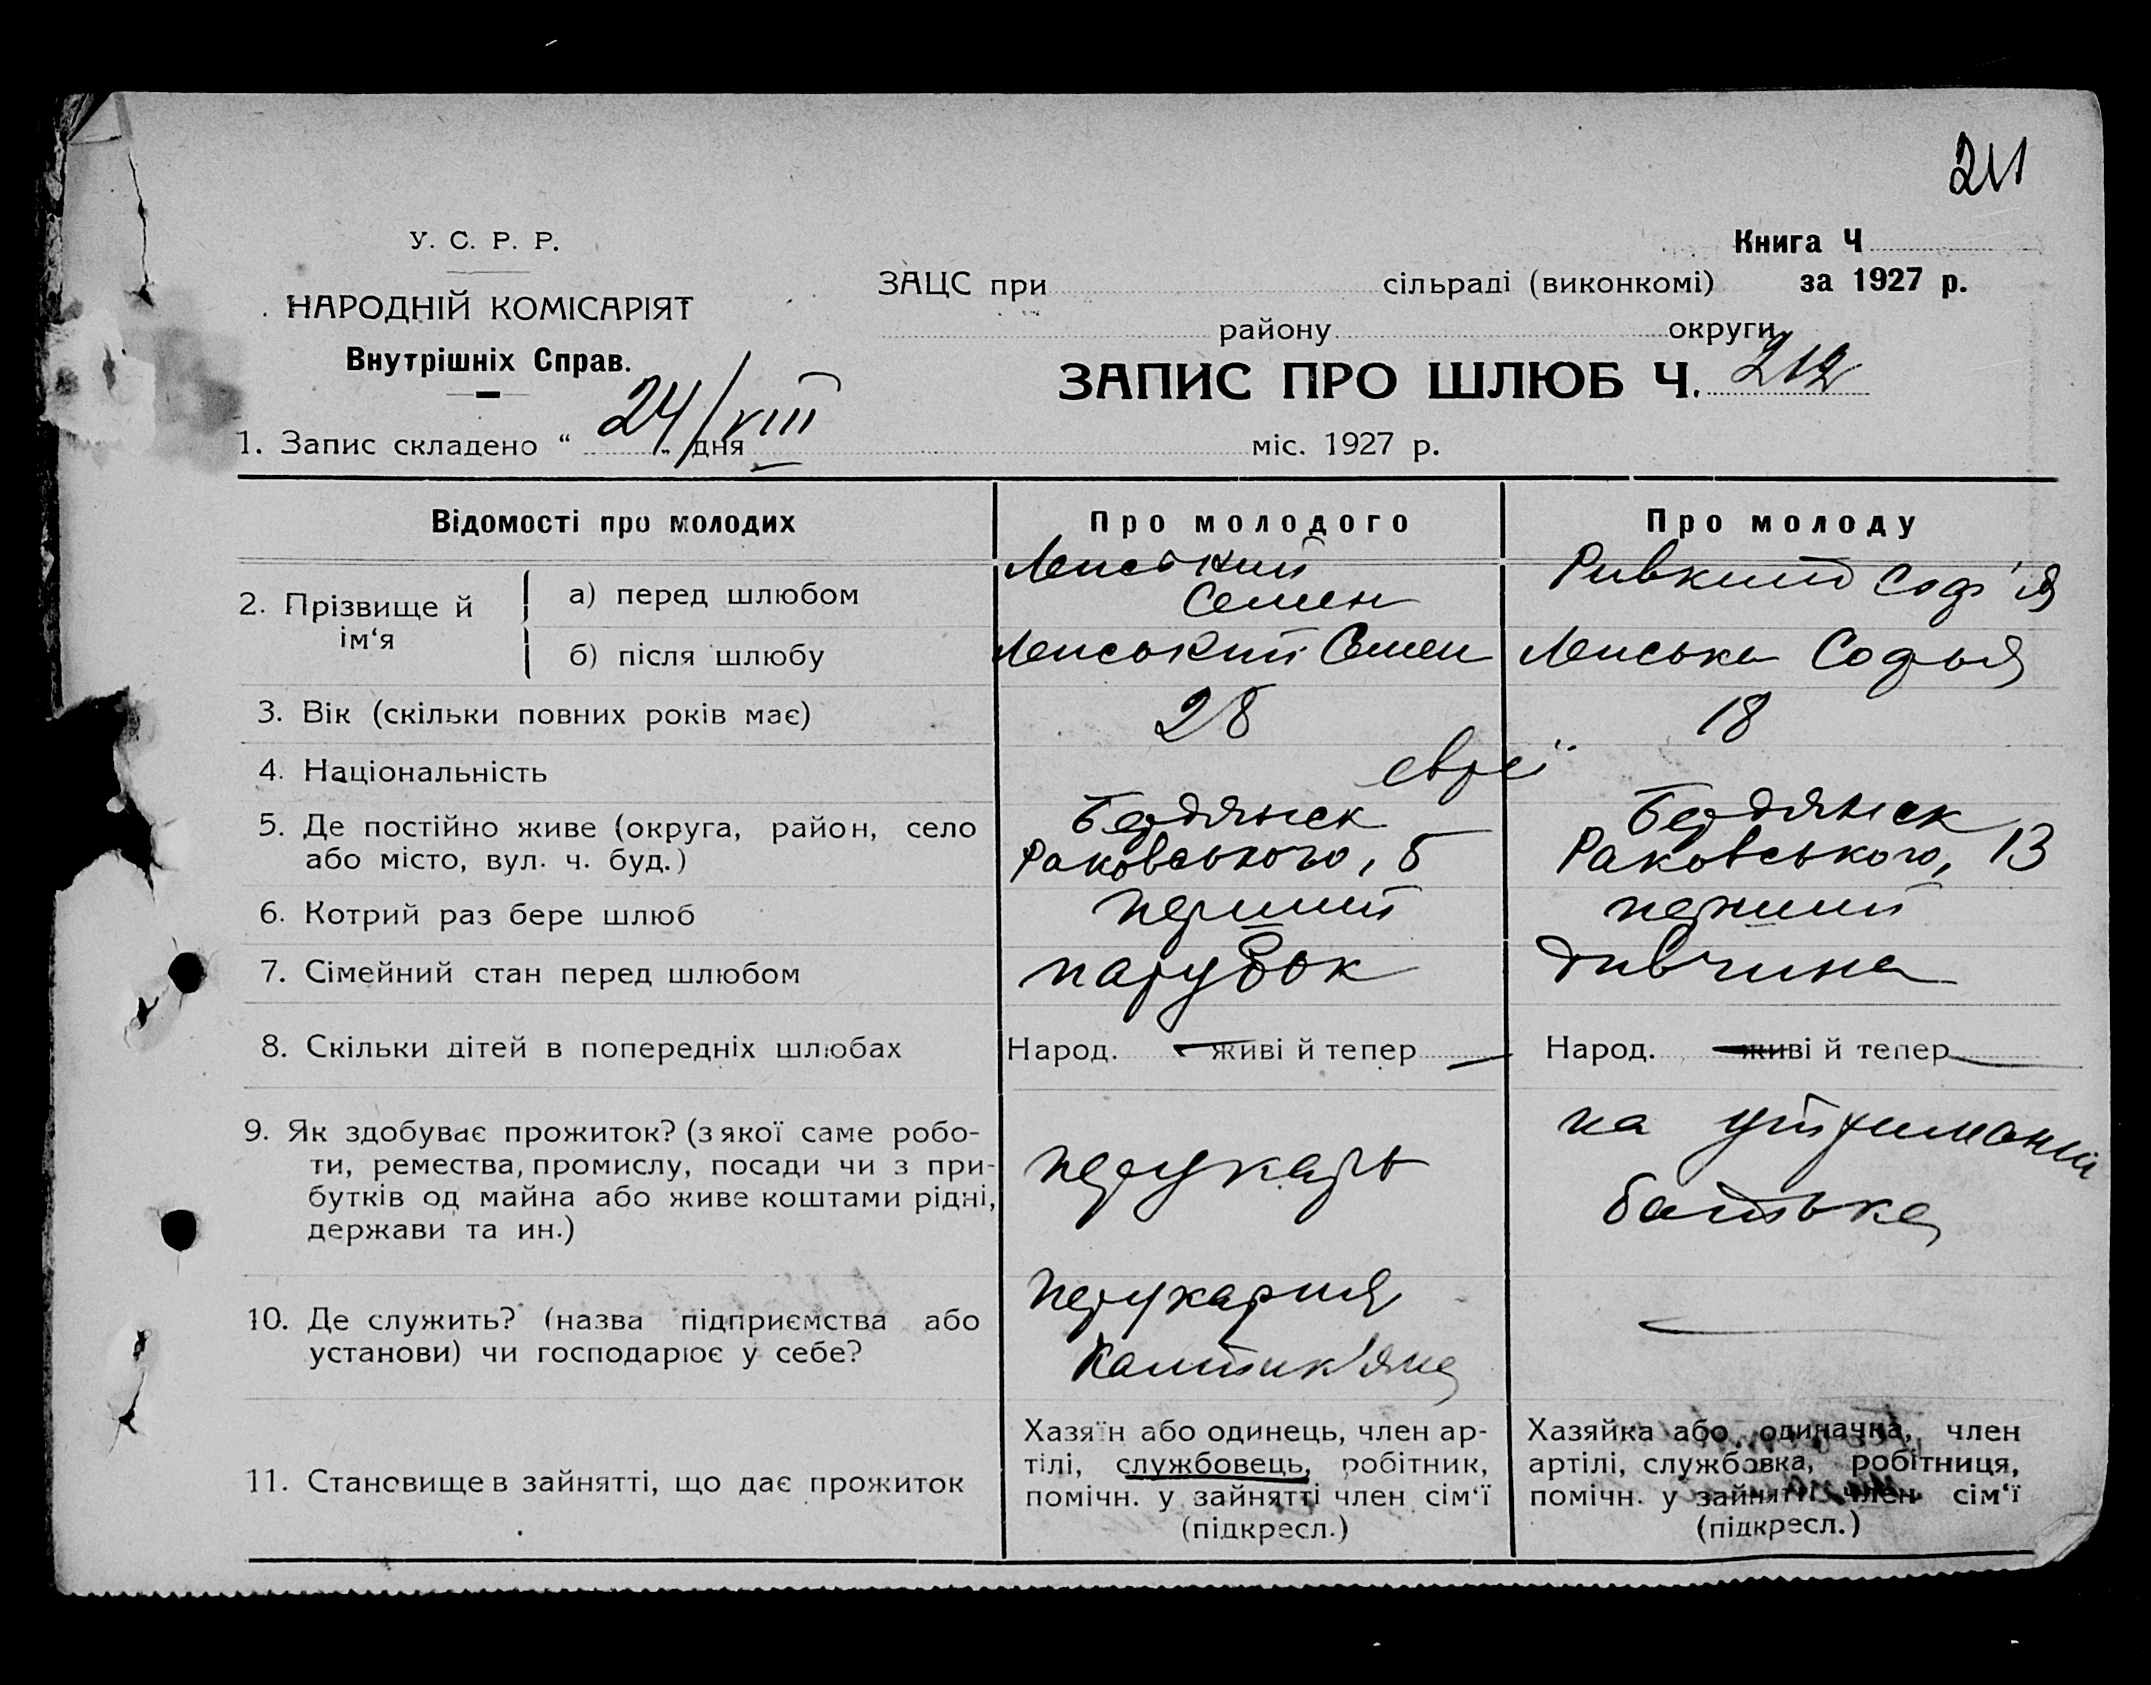 211
У. С. Р. Р.
НАРОДНІЙ КОМІСАРІЯТ
Внутрішніх Справ.
Книга Ч
ЗАЦС при сільраді (виконкомі) за 1927 р.
району округи
ЗАПИС ПРО ШЛЮБ Ч. 212
1. Запис складено “ 24/VIII „ дня міс. 1927 р.
Відомості про молодих Про молодого Про молоду
2. Прізвище й ім‘я
а) перед шлюбом Ленський Семен Ривкинд Соф'я
б) після шлюбу Ленський Семен Ленська Софья
3. Вік (скільки повних років має) 28 18
4. Національність євреї
5. Де постійно живе (округа, район, село Бердянськ Бердянськ
або місто, вул. ч. буд.) Раковського, 5 Раковського, 13
6. Котрий раз бере шлюб перший перший
7. Сімейний стан перед шлюбом парубок дивчина
8. Скільки дітей в попередніх шлюбах Народ. — живі й тепер — Народ. — живі й тепер —
9. Як здобуває прожиток? (з якої саме робо-
ти, ремества, промислу, посади чи з при-
бутків од майна або живе коштами рідні,
держави та ин.)
перукарь
на утриманні
батька
10. Де служить? (назва підприємства або
установи) чи господарює у себе?
перукарня
—
11. Становище в зайнятті, що дає прожиток
Хазяїн або одинець, член ар-
тілі, службовець, робітник,
помічн. у зайнятті член сім‘ї
(підкресл.)
Хазяйка або одиначка, член
артілі, службовка, робітниця,
помічн. у зайнятті член сім‘ї
(підкресл.)